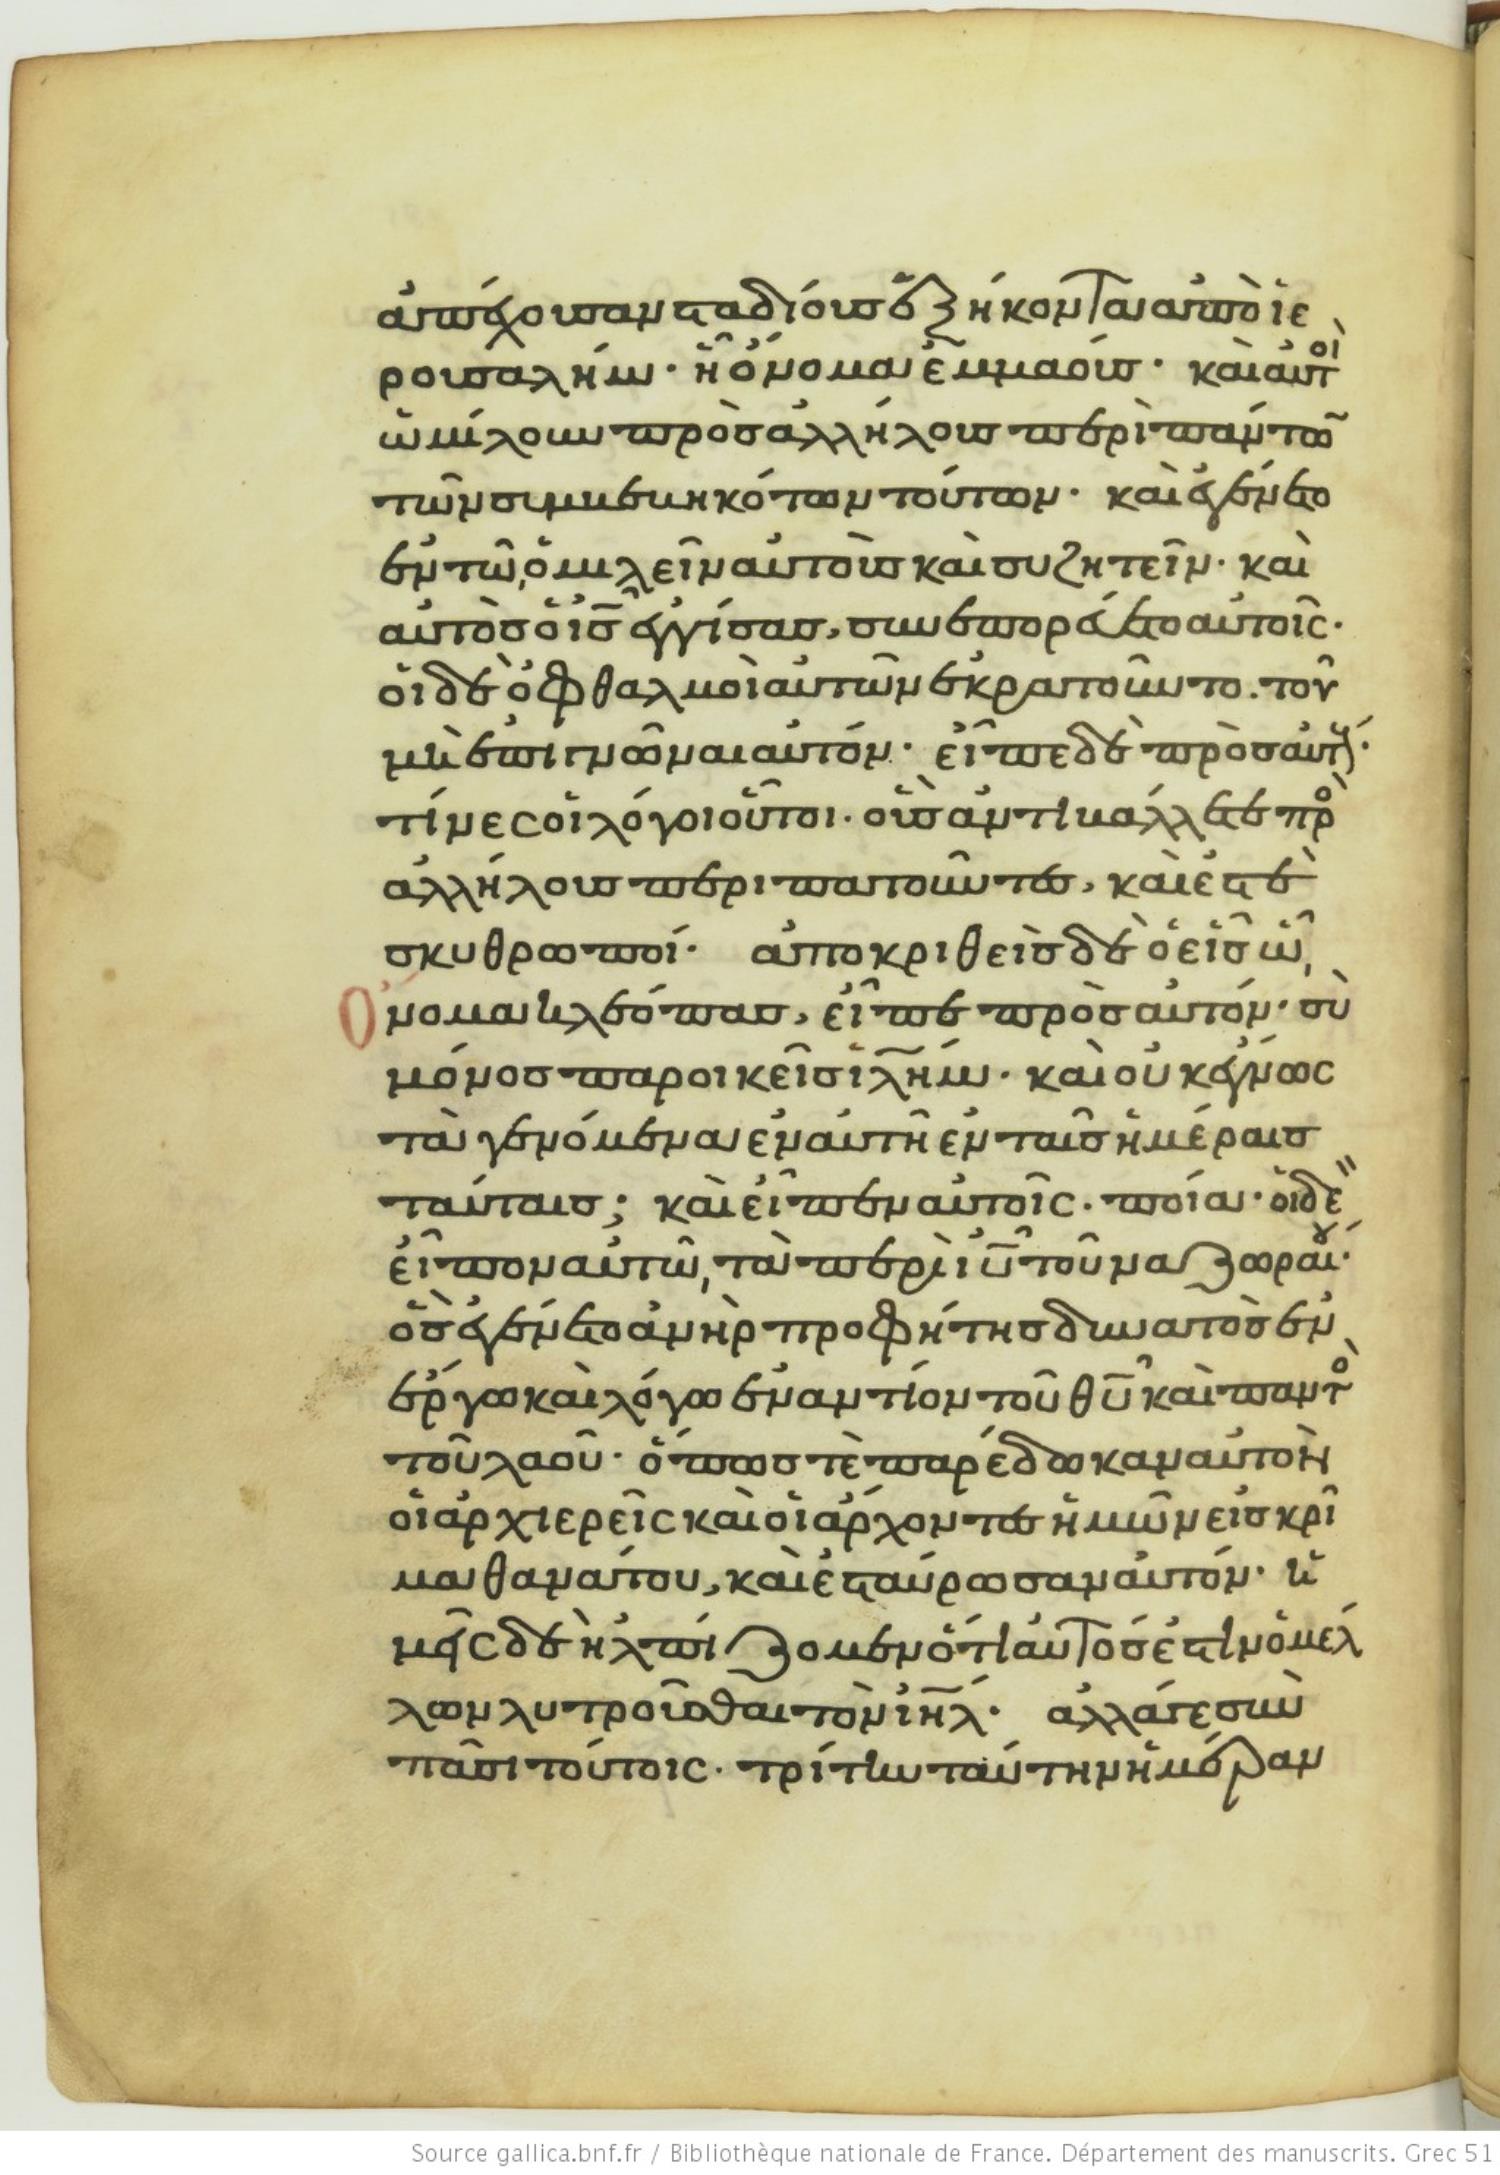 ἀπέχουσαν σταδίους ἑξήκοντα ἀπὸ ἱε
ρουσαλήμ· ἧ ὄνομα ἐμμαούς· καὶ αὐτοὶ
ὡμίλουν πρὸς ἀλλήλους περὶ πάντων
τῶν συμβεβηκότων τούτων· καὶ ἐγένετο
ἐν τῶ ὁμιλεῖν αὐτοὺς καὶ συζητεῖν· καὶ
αὐτὸς ὁ ις ἐγγίσας, συνεπορεύετο αὐτοῖς·
οἱ δὲ ὀφθαλμοὶ αὐτῶν ἐκρατοῦντο. τοῦ
μὴ ἐπιγνῶναι αὐτόν· εἶπε δὲ πρὸς αὐτούς·
τίνες οἱ λόγοι οὗτοι· οὓς ἀντιβάλλετε πρὸς
ἀλλήλους περιπατοῦντες, καὶ ἐστὲ
σκυθρωποί· ἀποκριθεὶς δὲ ὁ εἷς ὧ
Ὄνομα κλεόπας, εἶπε πρὸς αὐτόν· σὺ
μόνος παροικεῖς ιλημ· καὶ οὐκ ἔγνως
τὰ γενόμενα ἐν αὐτῆ ἐν ταῖς ἡμέραις
ταύταις; καὶ εἶπεν αὐτοῖς· ποία· οἱ δὲ
εἶπον αὐτῶ, τὰ περὶ ιυ τοῦ ναζωραίου·
ὃς ἐγένετο ἀνὴρ προφήτης δυνατὸς ἐν
ἔργω καὶ λόγω ἐναντίον τοῦ θυ καὶ παντὸς
τοῦ λαοῦ· ὅπως τὲ παρέδωκαν αὐτὸν
οἱ ἀρχιερεῖς καὶ οἱ ἄρχοντες ἡμῶν εἰς κρῖ
μα θανάτου, καὶ ἐσταύρωσαν αὐτόν· ἡ
μεῖς δὲ ἠλπίζομεν ὅτι αὐτός ἐστιν ὁ μέλ
λων λυτροῦσθαι τὸν ιηλ· ἀλλάγε σὺν
πᾶσι τούτοις· τρίτην ταύτην ἡμέραν
Source gallica.bnf.fr / Bibliothèque nationale de France. Département des manuscrits. Grec 51